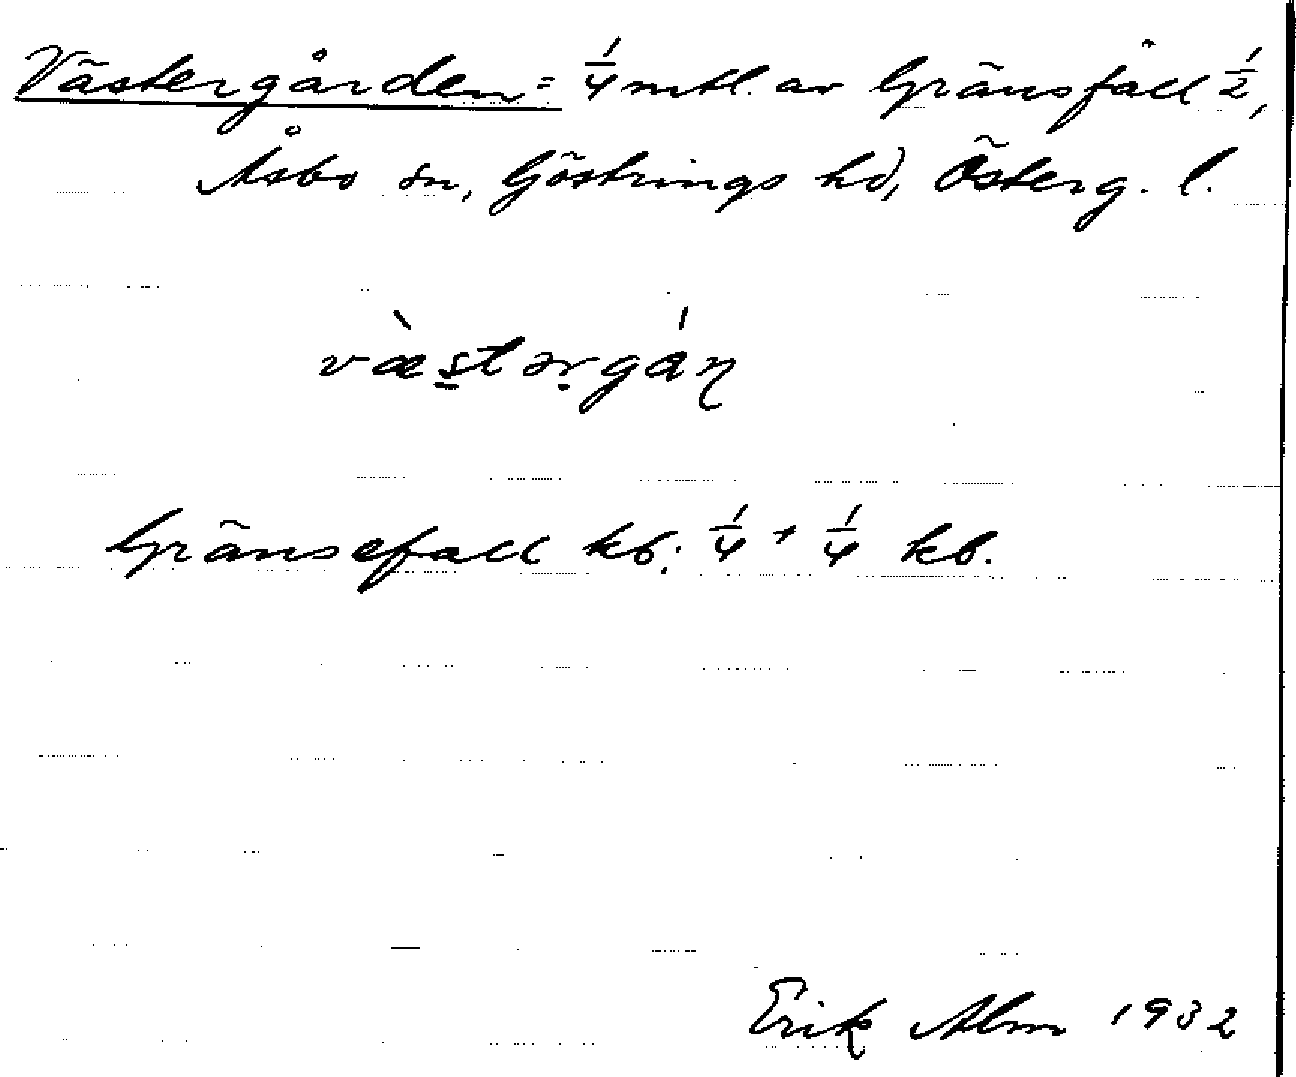 Västergården = 1/4 mtl. av Gränsfall 1/2,
Åsbo sn, Göstrings hd, Österg. l.
væ̀stərgáɳ
Gränsefall kb: 1/4 + 1/4 kb.
Erik Alm 1932